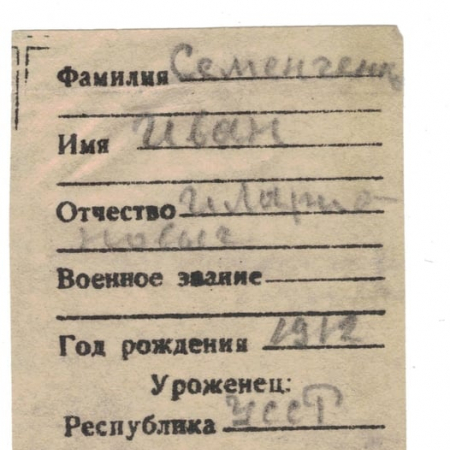 Фамилия Семенченко
Имя Иван
Отчество Иларио-
нович
Военное звание
Год рождения 1912
Уроженец:
Республика УССР